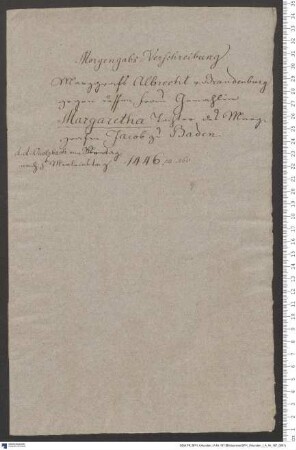 Morgengabs Verschreibung
Marggraft Albrecht v. Brandenburg
gegen dessen Frau Gemahlin
Margaretha Tochter des Marg
grafen Jacob zu Baden
d. d. am Sontag
nach 1446